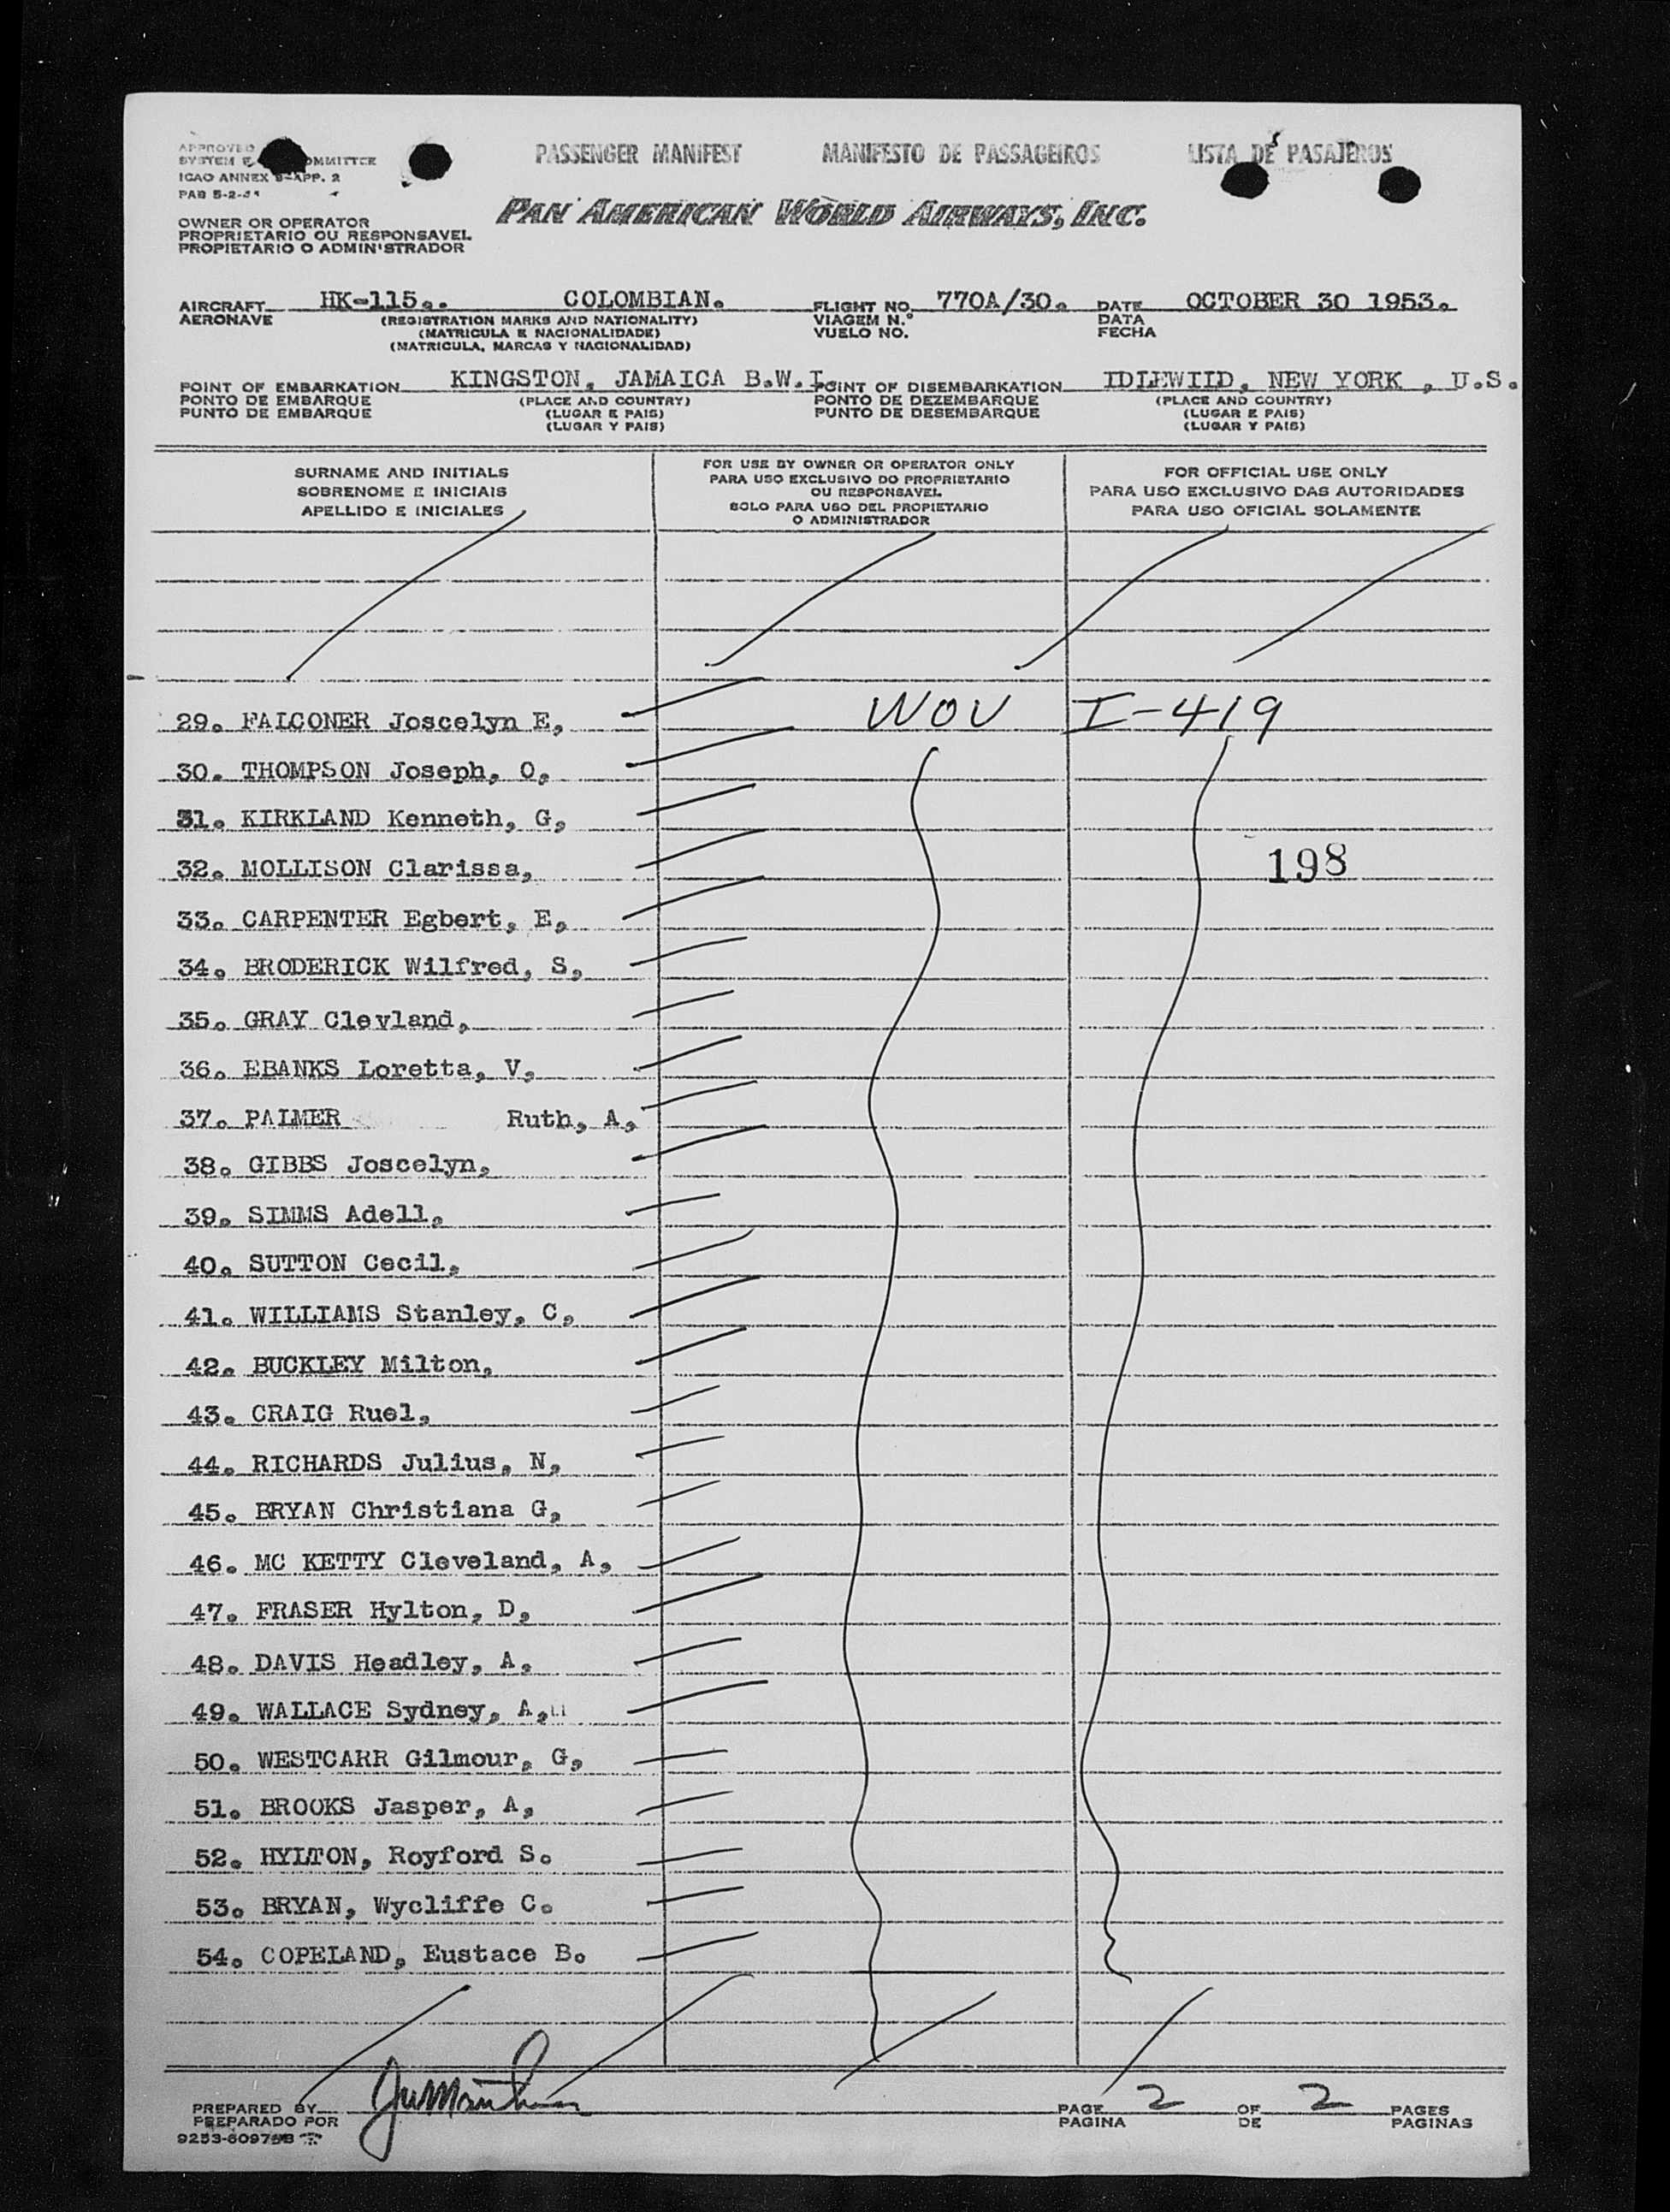 PASSENGER MANIFEST MANIFESTO DE PASSAGEIROS LISTA DE PASAJEROS
APPROVED
SYSTEM COMMITTEE
ICAO ANNEX 9-APP. 2
PAB 5-2-
PAN AMERICAN WORLD AIRWAYS, INC.
OWNER OR OPERATOR
PROPRIETARIO OU RESPONSAVEL
PROPIETARIO O ADMINISTRADOR
AIRCRAFT HK-115.. COLOMBIAN. FLIGHT NO. 770A/30. DATE OCTOBER 30 1953.
AERONAVE (REGISTRATION MARKS AND NATIONALITY) VIAGEM N.° DATA
(MATRICULA E NACIONALIDADE) VUELO NO. FECHA
(MATRICULA, MARCAS Y NACIONALIDAD)
POINT OF EMBARKATION KINGSTON, JAMAICA B.W.I. POINT OF DISEMBARKATION IDLEWIID, NEW YORK , U.S.
PONTO DE EMBARQUE (PLACE AND COUNTRY) PONTO DE DEZEMBARQUE (PLACE AND COUNTRY)
PUNTO DE EMBARQUE (LUGAR E PAIS) PUNTO DE DESEMBARQUE (LUGAR E PAIS)
(LUGAR Y PAIS) (LUGAR Y PAIS)
SURNAME AND INITIALS
SOBRENOME E INICIAIS
APELLIDO E INICIALES
FOR USE BY OWNER OR OPERATOR ONLY
PARA USO EXCLUSIVO DO PROPRIETARIO
OU RESPONSAVEL
SOLO PARA USO DEL PROPIETARIO
O ADMINISTRADOR
FOR OFFICIAL USE ONLY
PARA USO EXCLUSIVO DAS AUTORIDADES
PARA USO OFICIAL SOLAMENTE
29. FALCONER Joscelyn E, WOV I-419
30. THOMPSON Joseph, O,
31. KIRKLAND Kenneth, G,
32. MOLLISON Clarissa, 198
33. CARPENTER Egbert, E,
34. BRODERICK Wilfred, S,
35. GRAY Clevland,
36. EBANKS Loretta, V,
37. PALMER Ruth, A,
38. GIBBS Joscelyn,
39. SIMMS Adell,
40. SUTTON Cecil,
41. WILLIAMS Stanley, C,
42. BUCKLEY Milton,
43. CRAIG Ruel,
44. RICHARDS Julius, N,
45. BRYAN Christiana G,
46. MC KETTY Cleveland, A,
47. FRASER Hylton, D,
48. DAVIS Headley, A,
49. WALLACE Sydney, A,
50. WESTCARR Gilmour, G,
51. BROOKS Jasper, A,
52. HYLTON, Royford S.
53. BRYAN, Wycliffe C.
54. COPELAND, Eustace B.
PREPARED BY PAGE 2 OF 2 PAGES
PREPARADO POR PAGINA DE PAGINAS